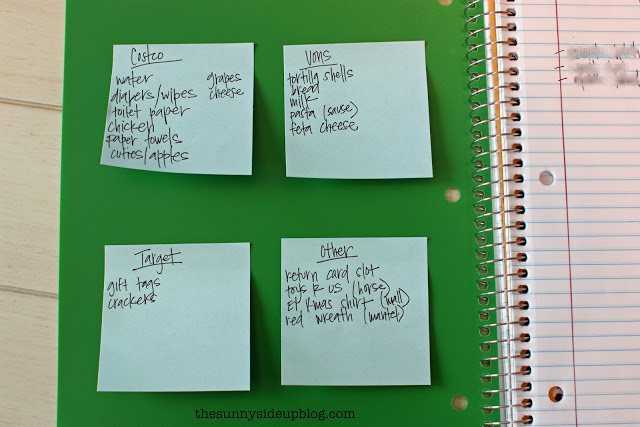 Costco
water
diapers/wipes
toilet paper
chicken
paper towels
cuties/apples
grapes
cheese
Vons
tortilla shells
bread
milk
pasta (sause)
feta cheese
Target
gift tags
crackers
Other
return card slot
toys R us (horse)
Et Xmas shirt (mall)
red wreath (mantel)
thesunnysideupblog.com